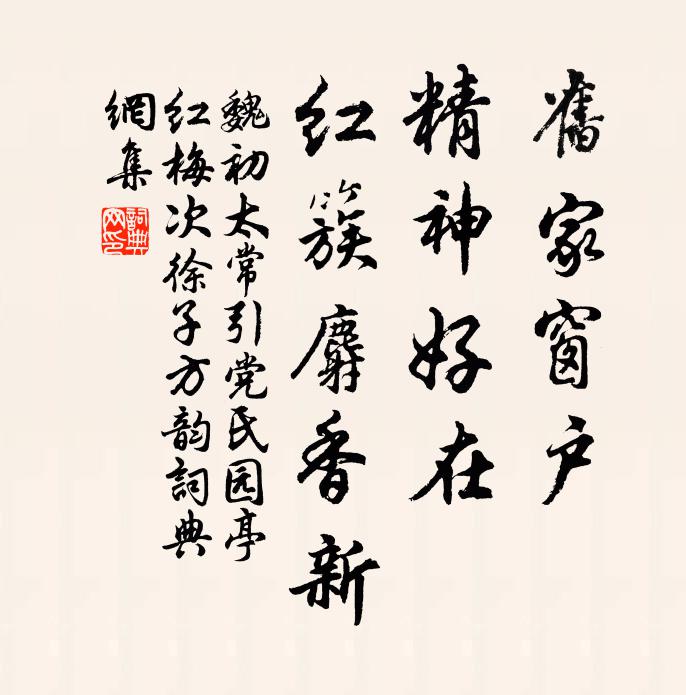 舊家窗户
精神好在
红簇麝香新
魏初太常引党民园亭
红梅次徐子方韵詞典
網集
詞典网印